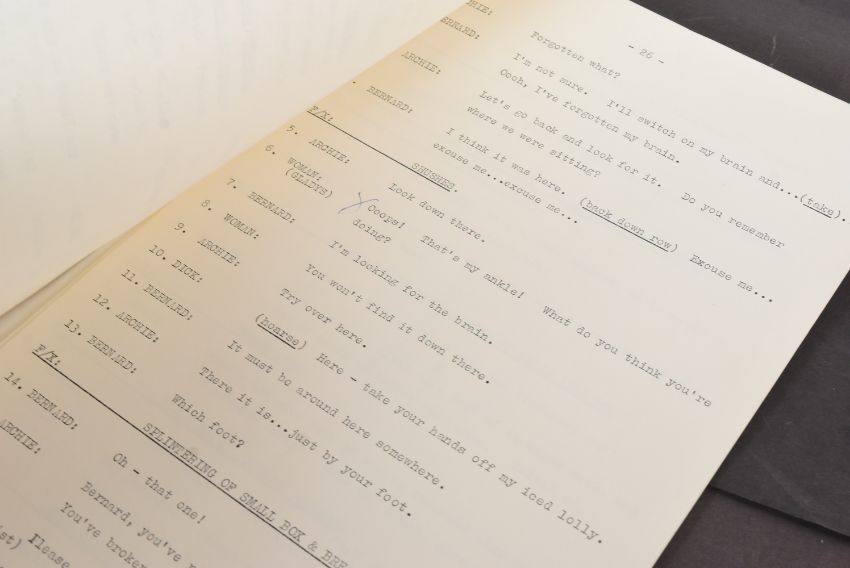 - 26 -
ARCHIE: Forgotten what?
BERNARD: I'm not sure. I'll switch on my brain and...(take).
Oooh, I've forgotten my brain.
ARCHIE: Let's go back and look for it. Do you remember
where we were sitting?
BERNARD: I think it was here. (back down row) Excuse me...
excuse me...excuse me...
F/X: SHUSHES.
5. ARCHIE: Look down there.
6. WOMAN: Ooops! That's my ankle! What do you think you're
(GLADYS) doing?
7. BERNARD: I'm looking for the brain.
8. WOMAN: You won't find it down there.
9. ARCHIE: Try over here.
10. DICK: (hoarse) Here - take your hands off my iced lolly.
11. BERNARD: It must be around here somewhere.
12. ARCHIE: There it is...just by your foot.
13. BERNARD: Which foot?
F/X: SPLINTERING OF SMALL BOX &
14. BERNARD: Oh - that one!
ARCHIE: Bernard, you've
You've